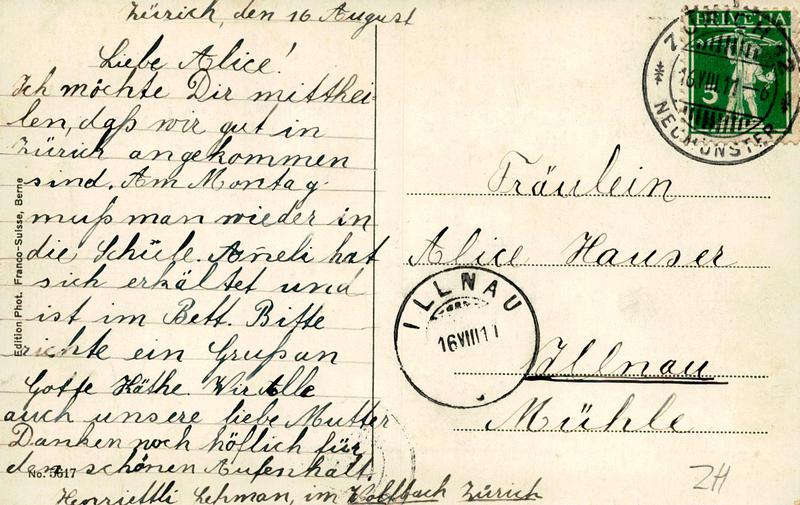 Zürich, den 16 August
Liebe Alice!
Ich möchte Dir mitthei-
len, daß wir gut in
Zürich angekommen
sind. Am Montag
muß man wieder in
die Schule. Anneli hat
sich erkältet und
ist im Bett. Bitte
richte ein Gruß an
Gotte Käthe. Wir Alle
auch unsere liebe Mutter
Danken noch höflich für
den schönen Aufenhalt.
Henriettli Lehman, im Wolfbach Zürich
Edition Phot. Franco-Suisse, Berne
No. 5617
HELVETIA
5
16 VIII 11
NEUMÜNSTER
Fräulein
Alice Hauser
Illnau
Mühle
ILLNAU
16 VIII 11
ZH